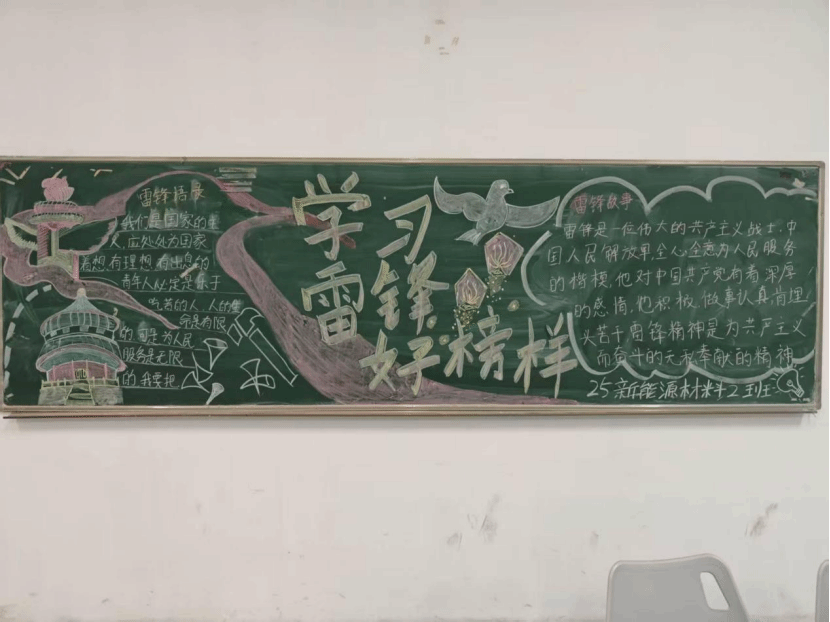 雷锋语展
我们是国家的主
人,应处处为国家
着想,有理想有出息的
青年人必定是乐于
吃苦的人,人的生
命是有限
的可是为人民
服务是无限
的我要把
学习
雷锋
好榜样
雷锋故事
雷锋是一位伟大的共产主义战士,中
国人民解放军,全心全意为人民服务
的榜模,他对中国共产党有着深厚
的感情,他积极做事认真肯理
义苦干雷锋精神是为共产主义
而奋斗的无私奉献的精神
25新能源材料2班